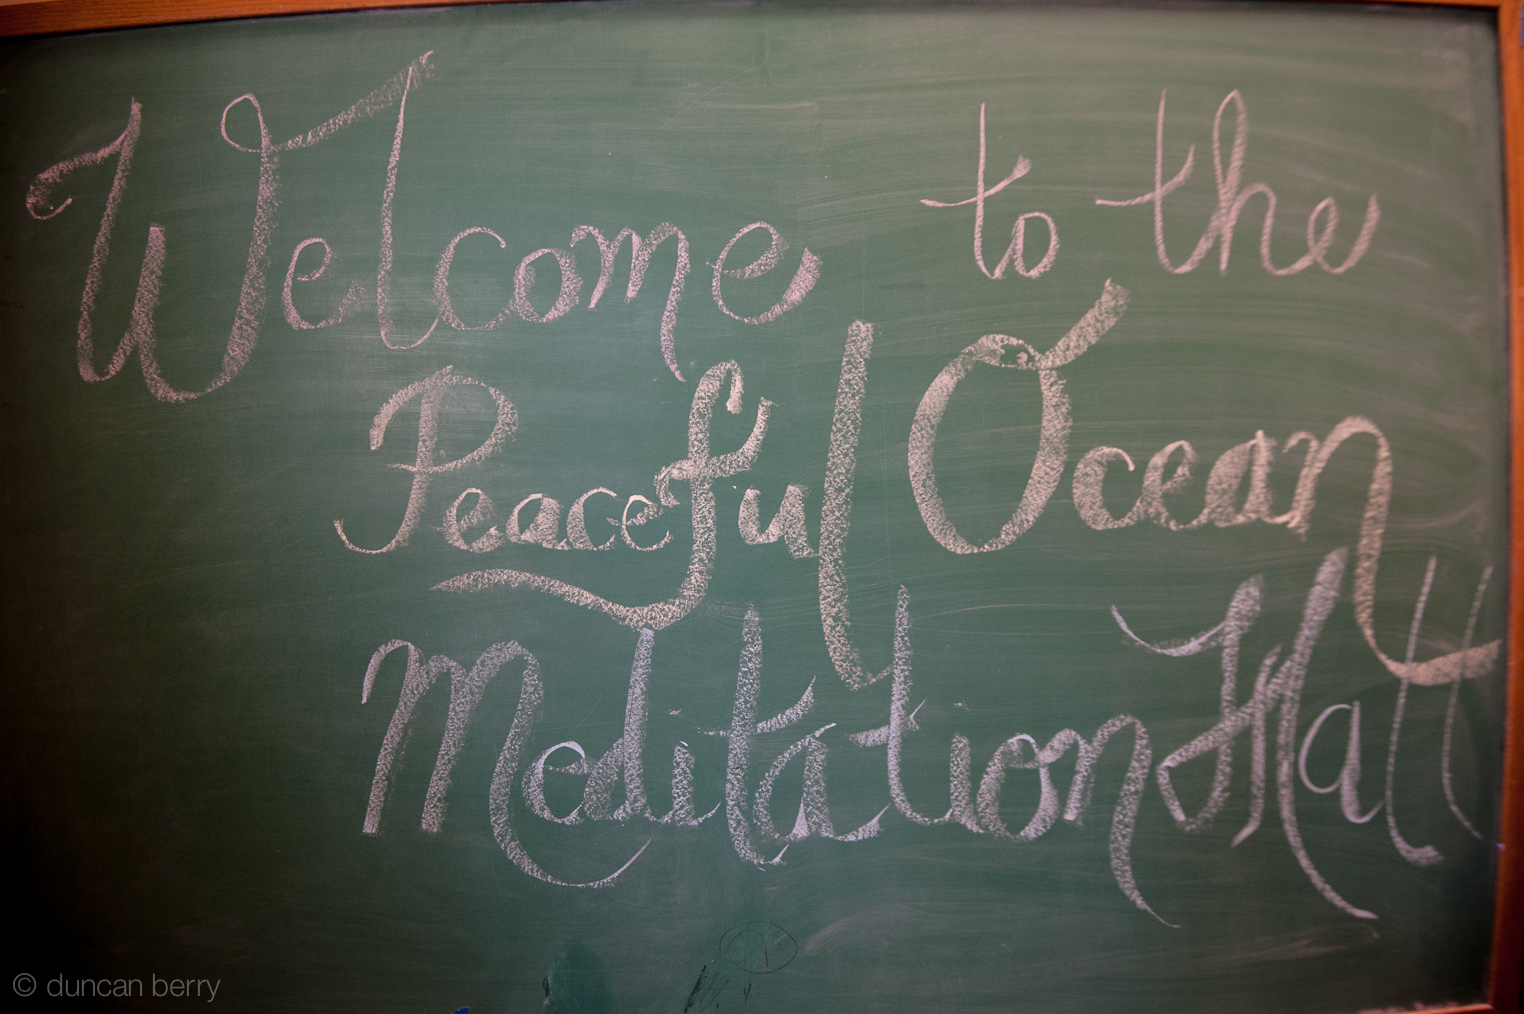 Welcome to the
Peaceful Ocean
Meditation Hall
© duncan berry